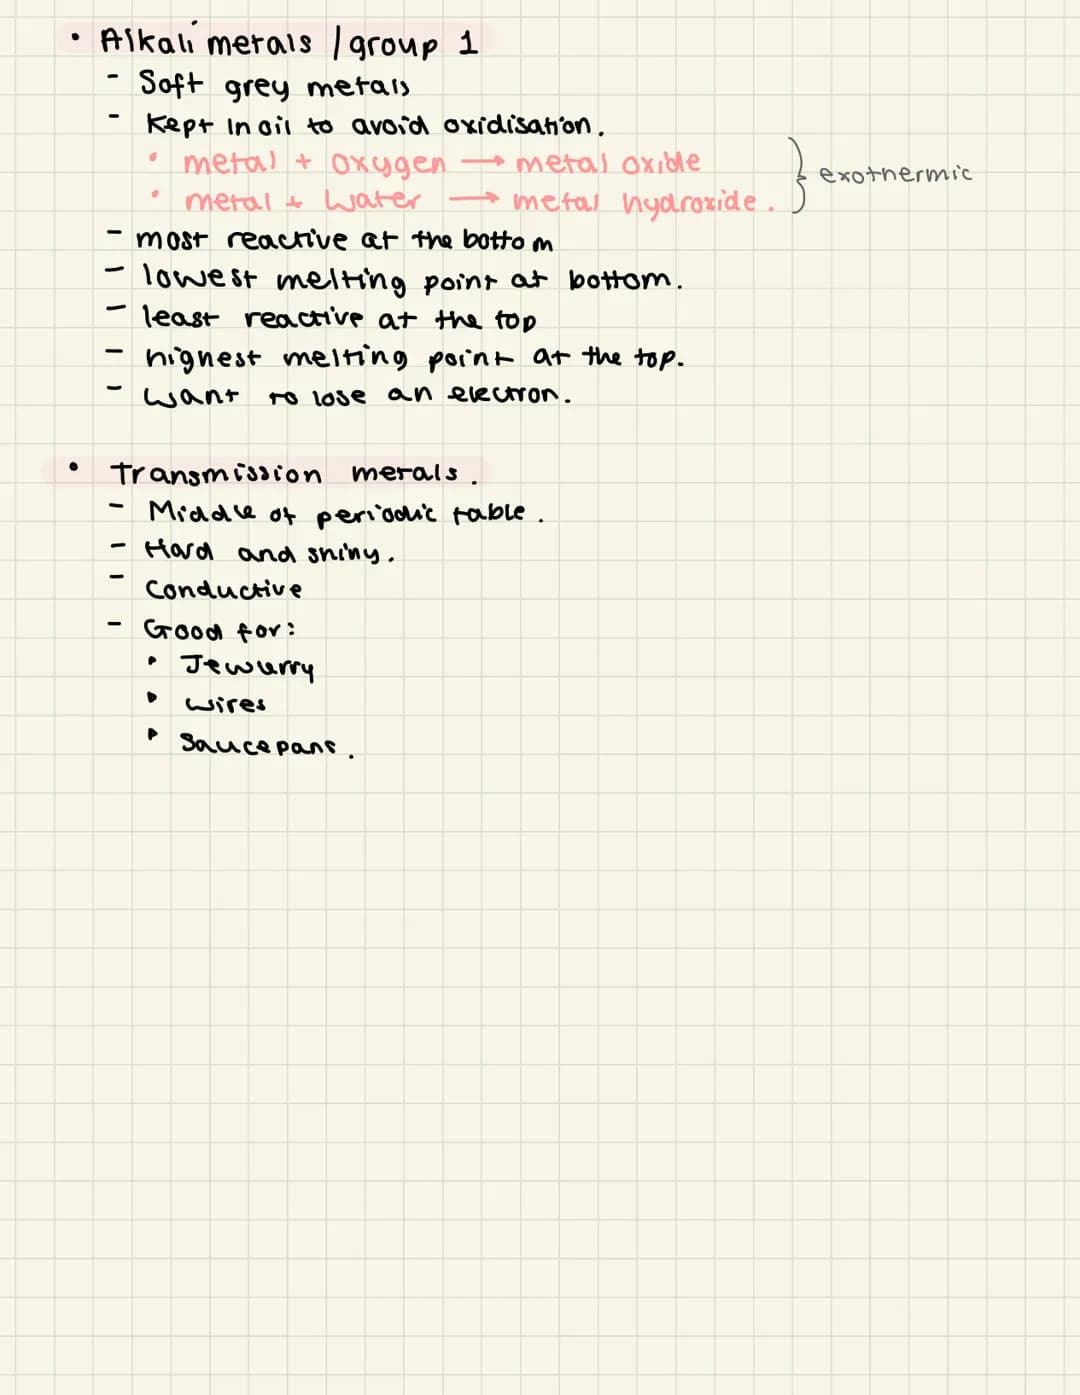 • Alkali metals / group 1
- Soft grey metals
- Kept in oil to avoid oxidisation.
• metal + oxygen → metal oxible
• metal + water → metal hydroxide. } exothermic
- most reactive at the bottom
- lowest melting point at bottom.
- least reactive at the top
- highest melting point at the top.
- want to lose an electron.
• Transmission metals.
- Middle of periodic table.
- Hard and shiny.
- Conductive
- Good for:
• Jewurry
• wires
• Saucepans.